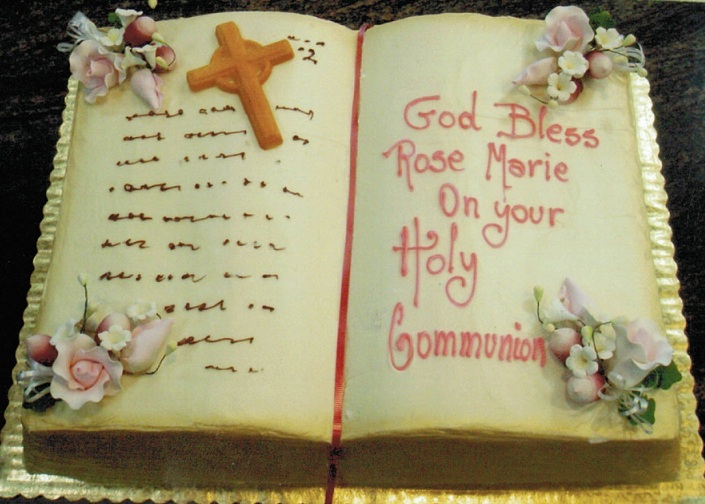 God Bless
Rose Marie
On your
Holy
Communion